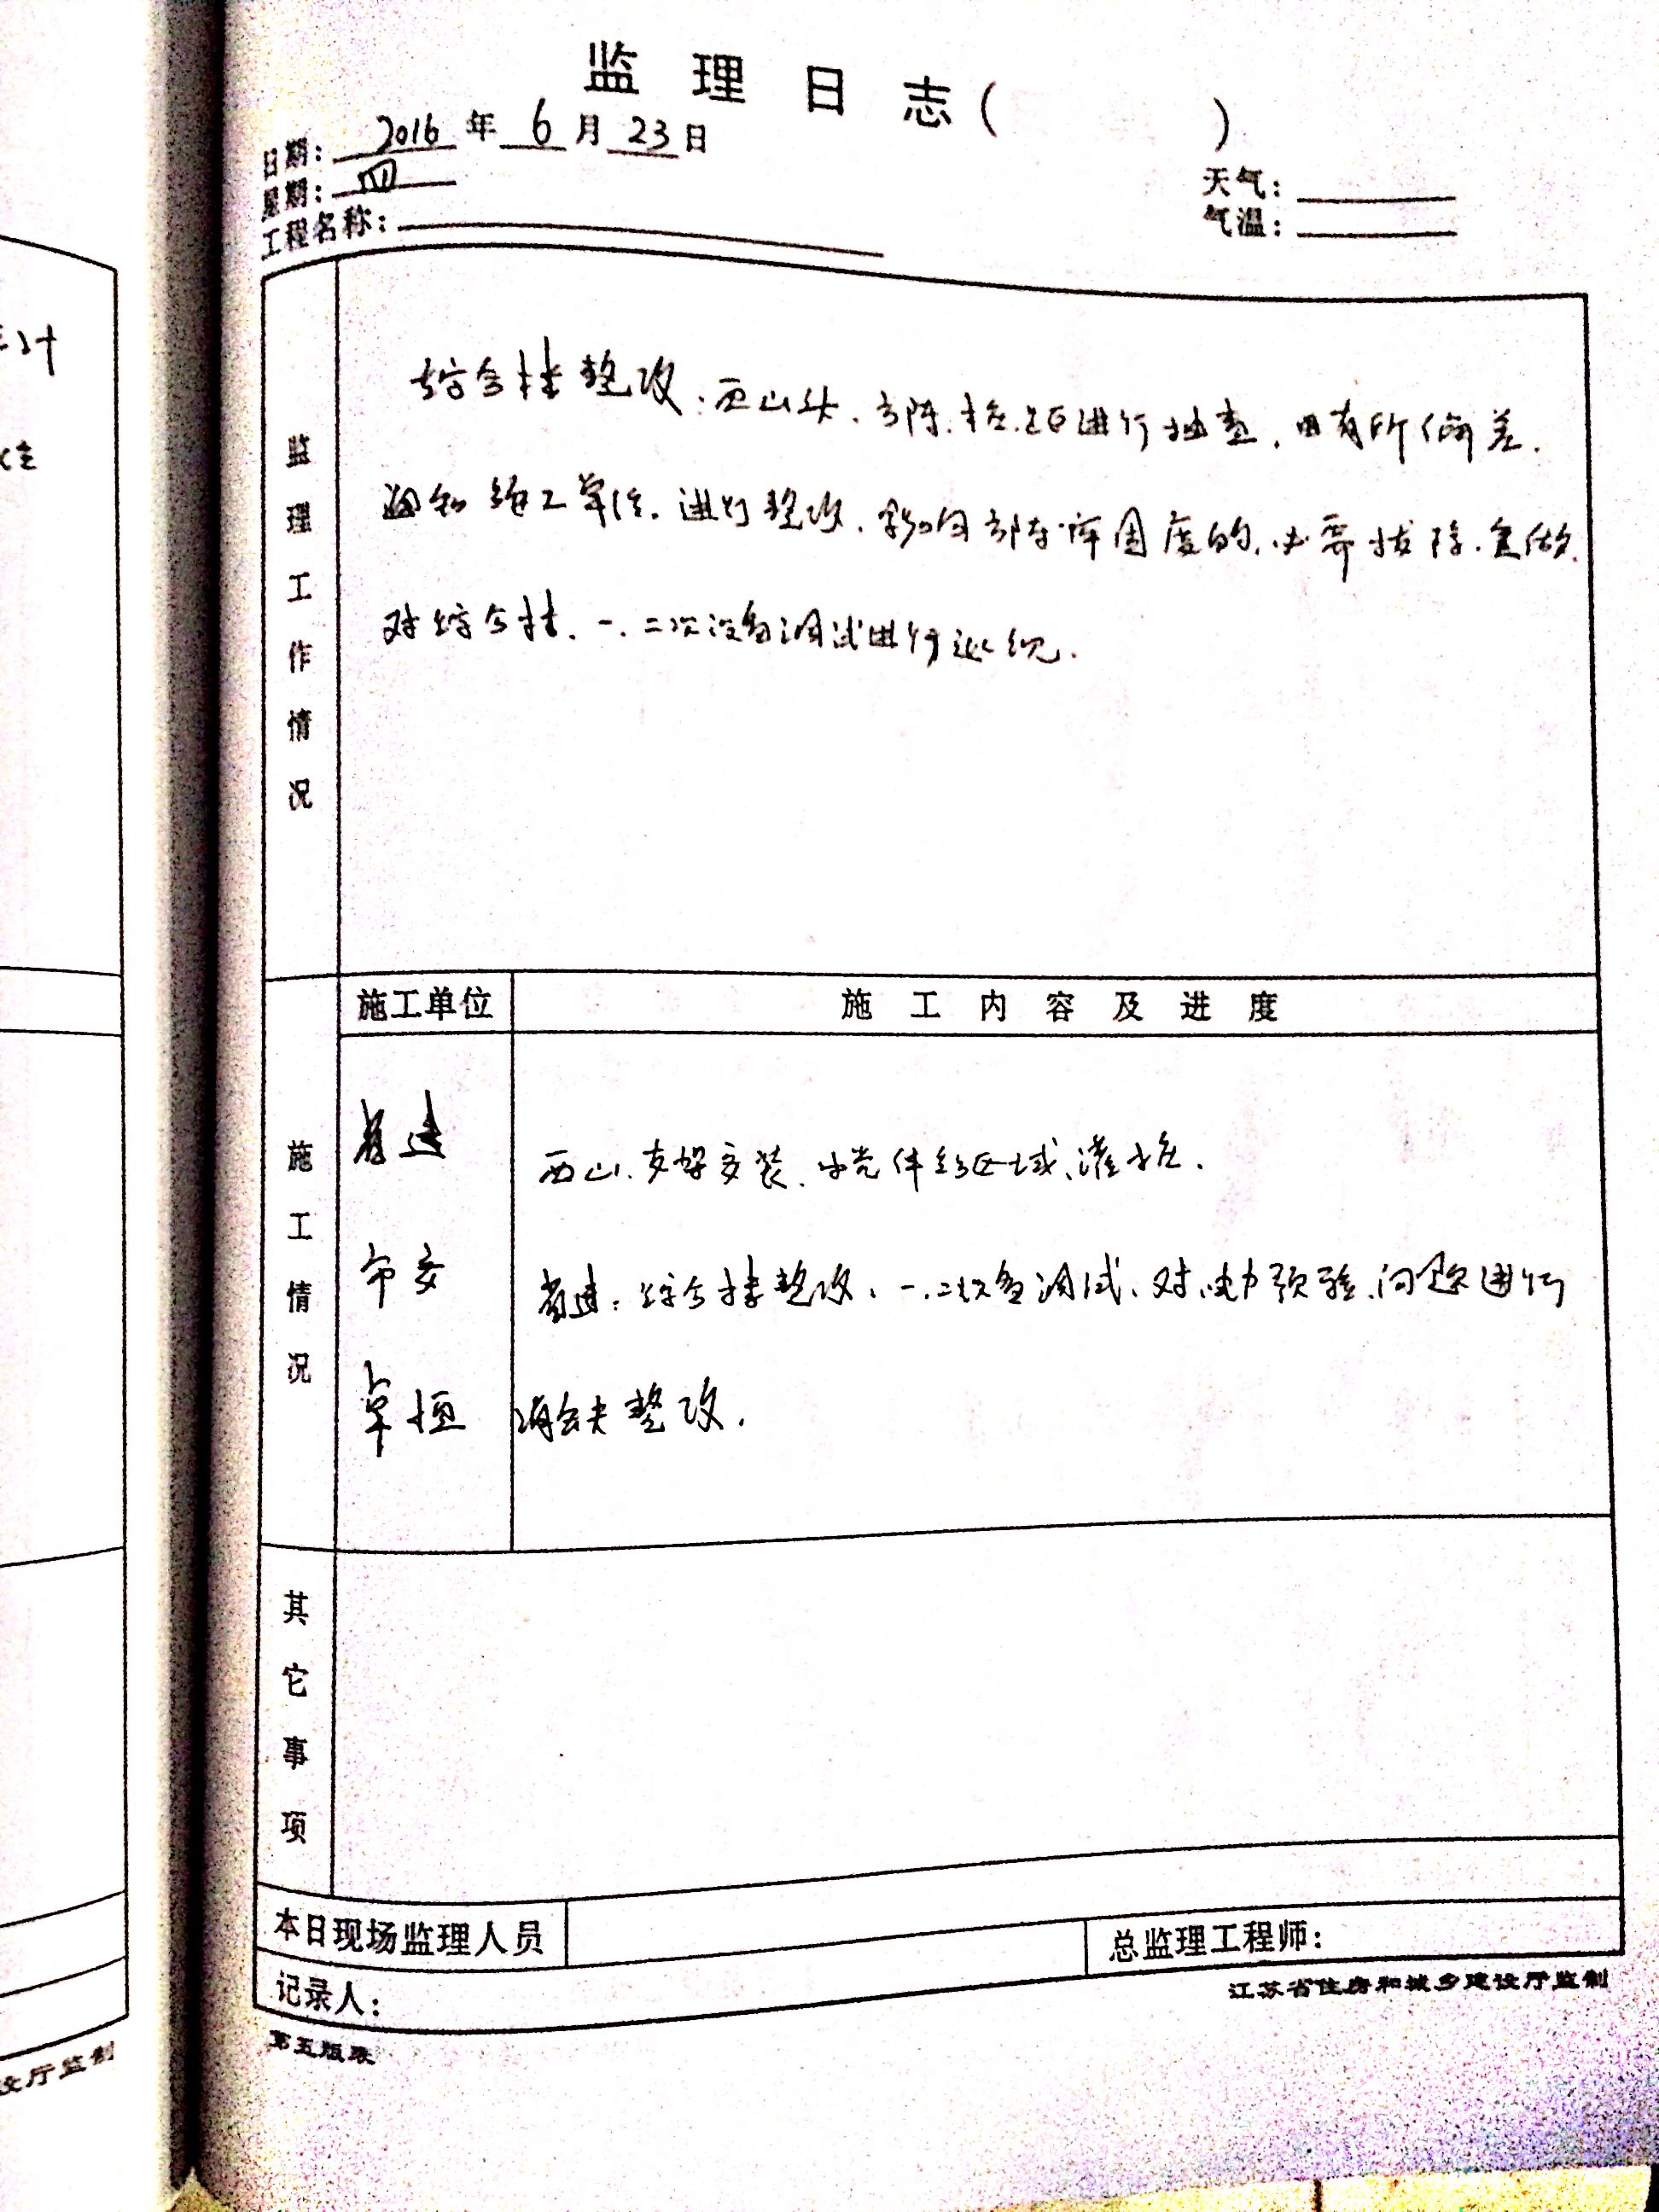 监理日志( )
日期: 2016 年 6 月 23 日
星期: 四
天气:
气温:
工程名称:
监理工作情况
综合楼整改.西山头.方阵.桩.距进行抽查,有所偏差.
通知施工单位.进行整改.影响方阵牢固度的.必要拔除.重做.
对综合楼.一.二次设备调试进行巡视.
施工单位
施工内容及进度
施工情况
省建
西山.支架安装.区域.灌桩.
市安
省建:综合楼整改.一.二次设备调试.对电力预验.问题进行
卓恒
消缺整改.
其它事项
本日现场监理人员
总监理工程师:
记录人:
江苏省住房和城乡建设厅监制
第五版表
设厅监制